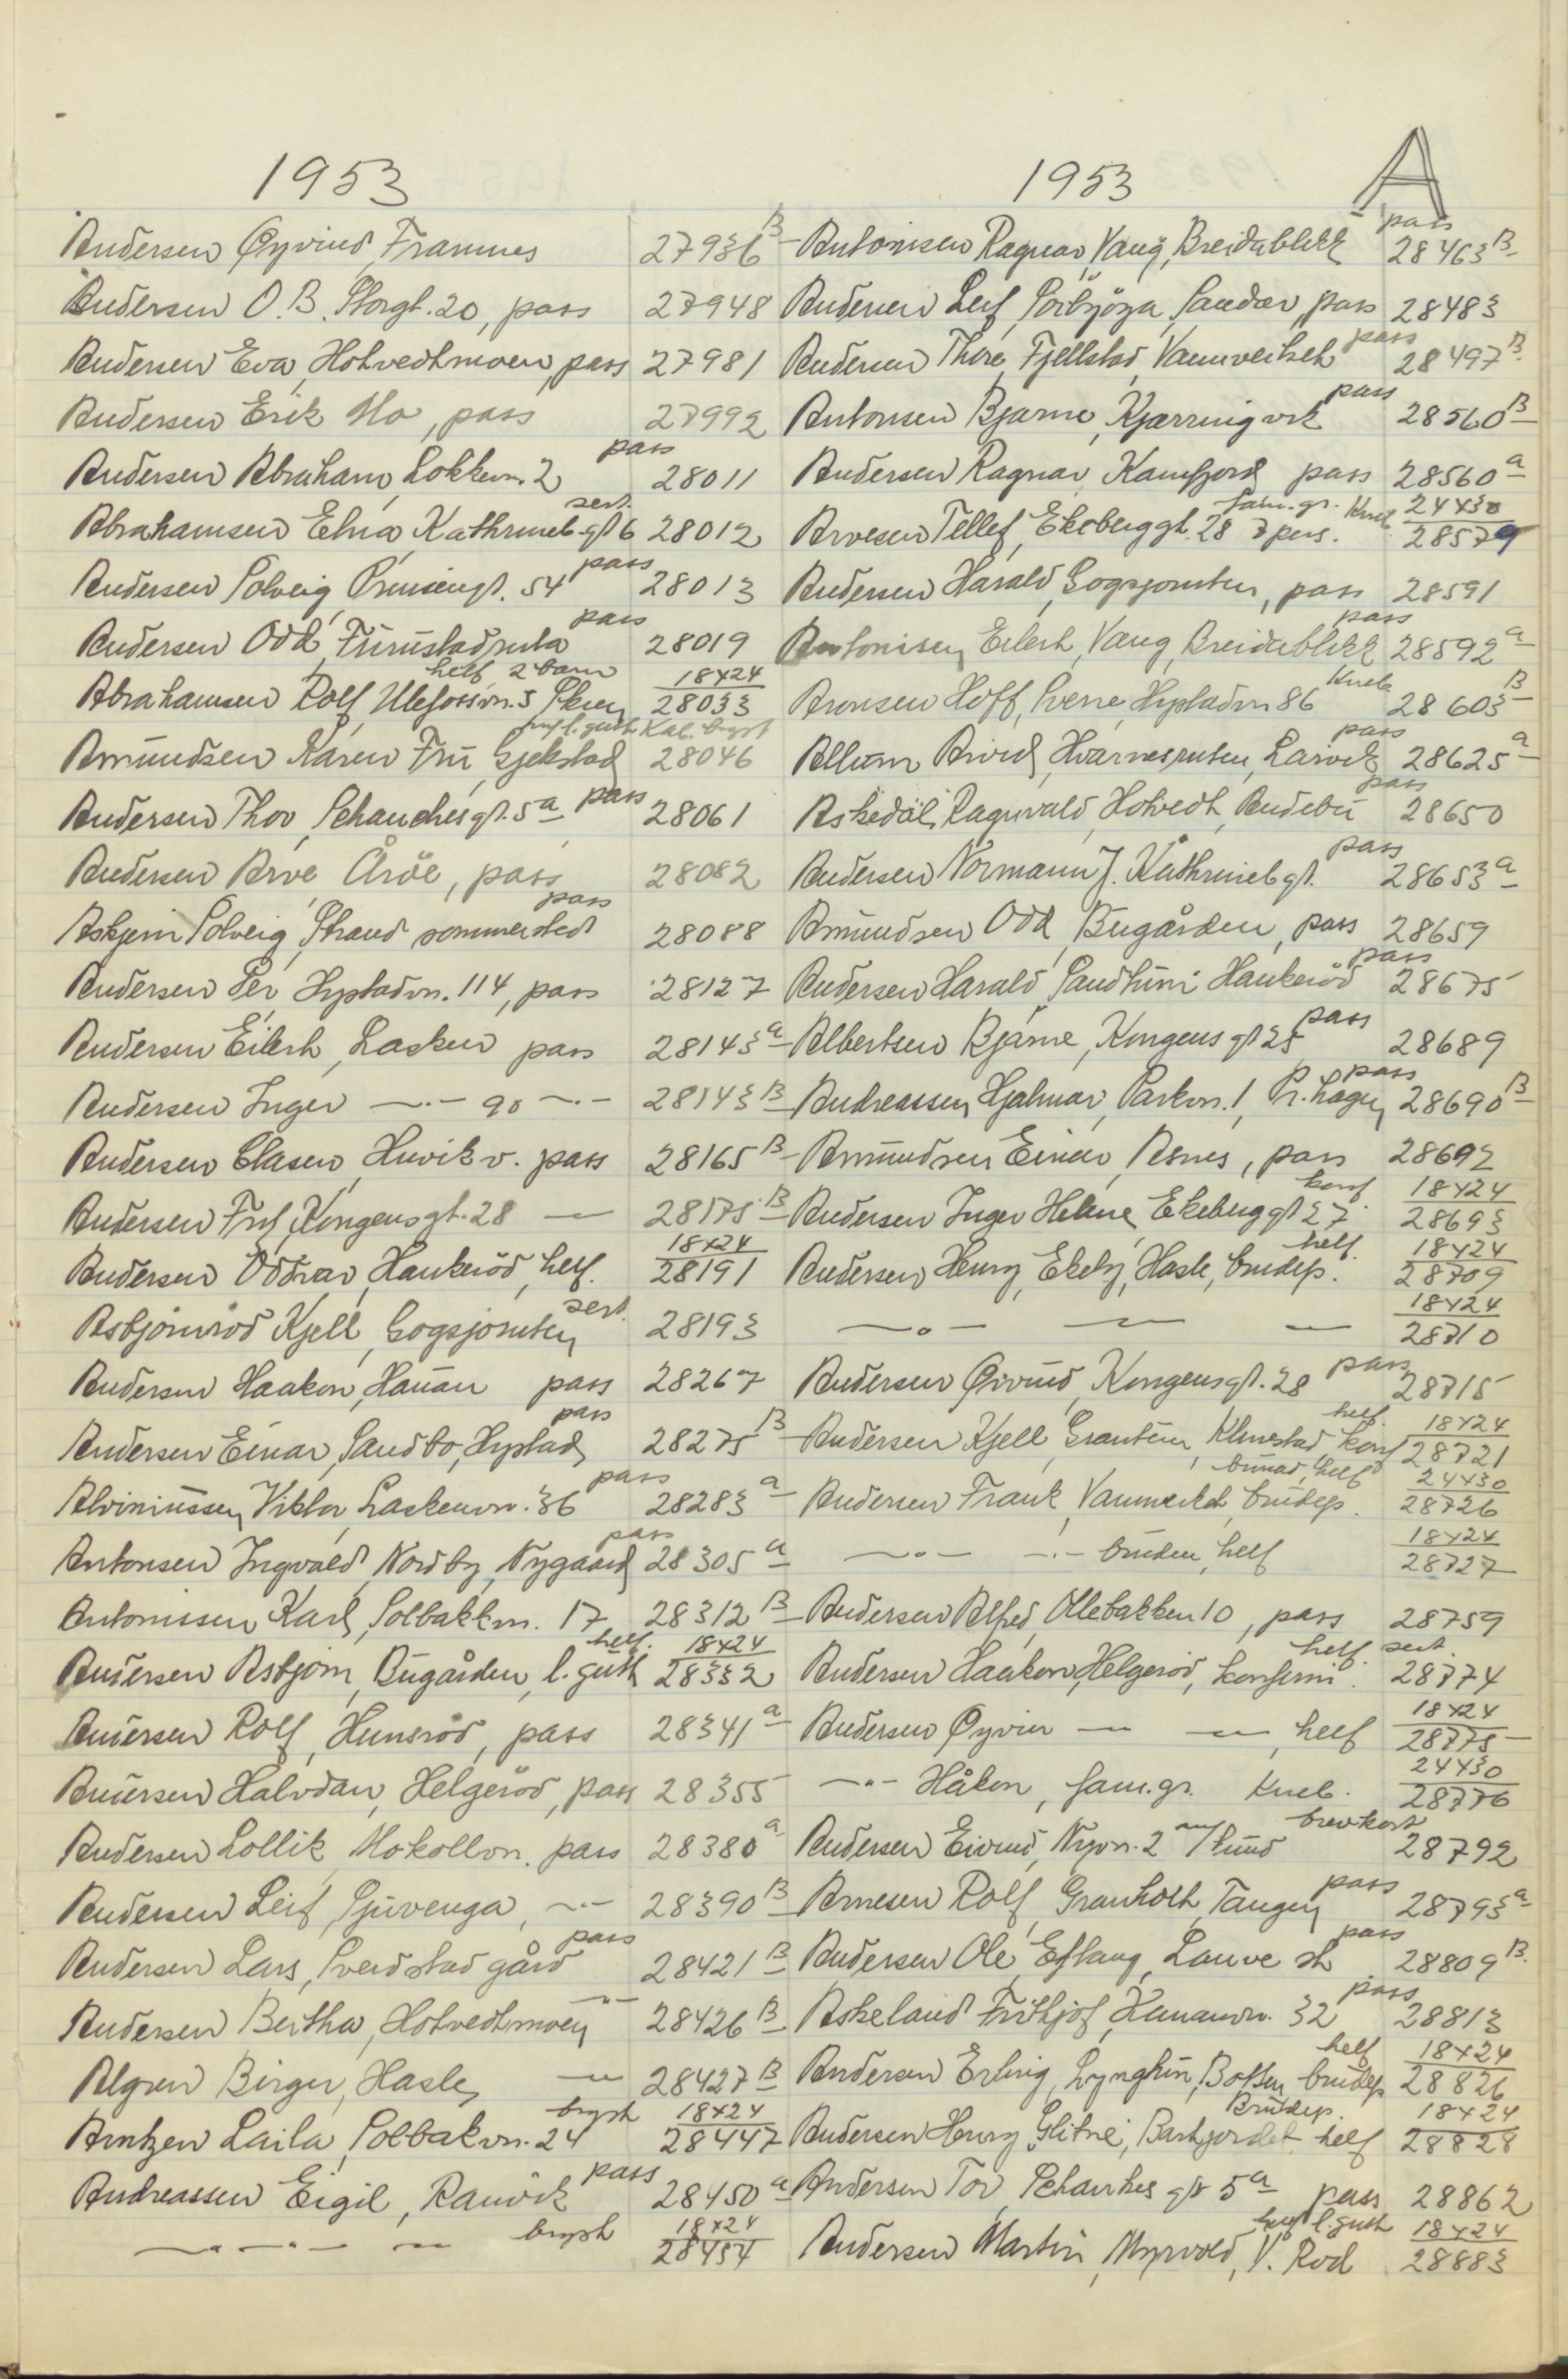 1953
Andersen Øyvind, Framnes 27936 B
Andersen O.B. Storgt. 20, pass 27948
Andersen Eva, Hotvedtmoen, pass 27981
Andersen Erik Mo, pass 27992
Andersen Abraham, Lokken 2 pass 28011
Abrahamsen Elna, Kathrinebgt 6 sert. 28012
Andersen Solveig, Prinsensgt. 54 pass 28013
Andersen Odd, Furustadruta pass 28019
Abrahamsen Rolf, Ulefossvn. 5 Skien helf 2 barn 18x24 28033
Amundsen Karen Fru, Gjekstad m/l. gutt Kab. byst 28046
Andersen Thor, Schanchesgt. 5a pass 28061
Andersen Arve Årøe, pass 28082
Askjem Solveig, Strand sommersted pass 28088
Andersen Per Hystadvn. 114, pass 28127
Andersen Eilert, Lasken pass 28143 a
Andersen Inger —"— 90 —"— 28143 B
Andersen Clasen, Huvik v. pass 28165 B
Andersen Frk, Kongensgt. 28 — 28175 B
Andersen Oddvar, Haukerød, helf. 18x24 28191
Asbjørnrød Kjell, Gogsjøruten sert. 28193
Andersen Haakon, Hauan pass 28267
Andersen Einar, Sandbo, Hystad pass 28275 B
Alviniussen, Viktor Laskenvn. 36 pass 28283 a
Antonsen Ingvald, Nordby, Nygaard pass 28305 a
Antonissen Karl, Solbakkvn. 17 28312 B
Andersen Asbjørn, Bugården, l. gutt helf. 18x24 28332
Andersen Rolf, Hunsrød, pass 28341 a
Andersen Halvdan, Helgerød, pass 28355
Andersen Lollik, Mokollvn. pass 28380 a
Andersen Leif, Gjuvenga, —"— 28390 B
Andersen Lars, Sverdstad gård pass 28421 B
Andersen Bertha, Hotvedtmoen —"— 28426 B
Algren Birger, Hasle — 28427 B
Arntzen Laila, Solbakvn. 24 byst 18x24 28447
Andreassen Eigil, Ranvik pass 28450 a
—"— —"— — byst 18x24 28454
1953 A
Antonisen Ragnar, Vang, Breidablikk pass 28463 B
Andersen Leif, Sørbyøya, Sandar, pass 28483
Andersen Thore, Fjellstad, Vannverket pass 28497 B
Antonsen Bjarne, Kjærringvik pass 28560 B
Andersen Ragnar, Kamfjord pass 28560 a
Arvesen Tellef, Ekeberggt. 28 7 pers. fam.gr. Kneb. 24x30 28579
Andersen Harald, Gogsjøruten, pass 28591
Antonisen, Eilert, Vang, Breidablikk pass 28592 a
Aronsen Hoff, Sverre, Hystadvn 86 Kneb 28603 B
Allum Arvid, Hvarnesruten, Larvik pass 28625 a
Askedal, Ragnvald, Hotvedt, Andebu pass 28650
Andersen Normann J. Kathrinebgt. pass 28653 a
Amundsen Odd, Bugården, pass 28659
Andersen Harald, Sandtun Haukerød pass 28675
Albertsen Bjarne, Kongensgt 25 pass 28689
Andreassen, Hjalmar, Parkvn. 1, Pr. hagen pass 28690 B
Amundsen Einar, Asnes, pass 28692
Andersen Inger Helene, Ekeberggt 27 konf. 18x24 28693
Andersen Henry, Ekely, Hasle, brudep. helf. 18x24 28709
—"— — — 18x24 28710
Andersen Øivind, Kongensgt. 28 pass 28715
Andersen Kjell, Grantun, Klinestad konf helf. 18x24 28721
Andersen Frank, Vannverket, brudep. brunad, helf 24x30 28726
—"— —"— bruden, helf 18x24 28727
Andersen Alfred, Ollebakken 10, pass 28759
Andersen Haakon, Helgerød, konferm. helf. sert. 28774
Andersen Øyvin — —, helf 18x24 28775
—"— Håkon, fam.gr. Kneb. 24x30 28776
Andersen Eivind, Nyvn. 2 m/hund brevkort 28792
Arnesen Rolf, Granholt, Tangen pass 28793 a
Andersen Ole, Eftang, Lauve st pass 28809 B
Askeland Frithjof, Kamanvn. 32 pass 28813
Andersen Erling, Lynghun, Botsen brudep helf 18x24 28826
Andersen Henry, Glitne, Barkjordet helf Brudep. 18x24 28828
Andersen Tor, Schankes gt 5a pass 28862
Andersen Martin, Myrvold, V. Rød helf l. gutt 18x24 28883